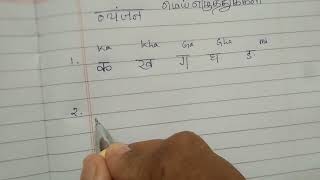 व्यंजन மெய்எழுத்துக்கள்
Ka Kha Ga Gha
1. क ख ग घ ङ
2.